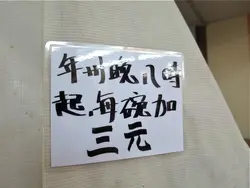 年卅晚八时
起每碗加
三元